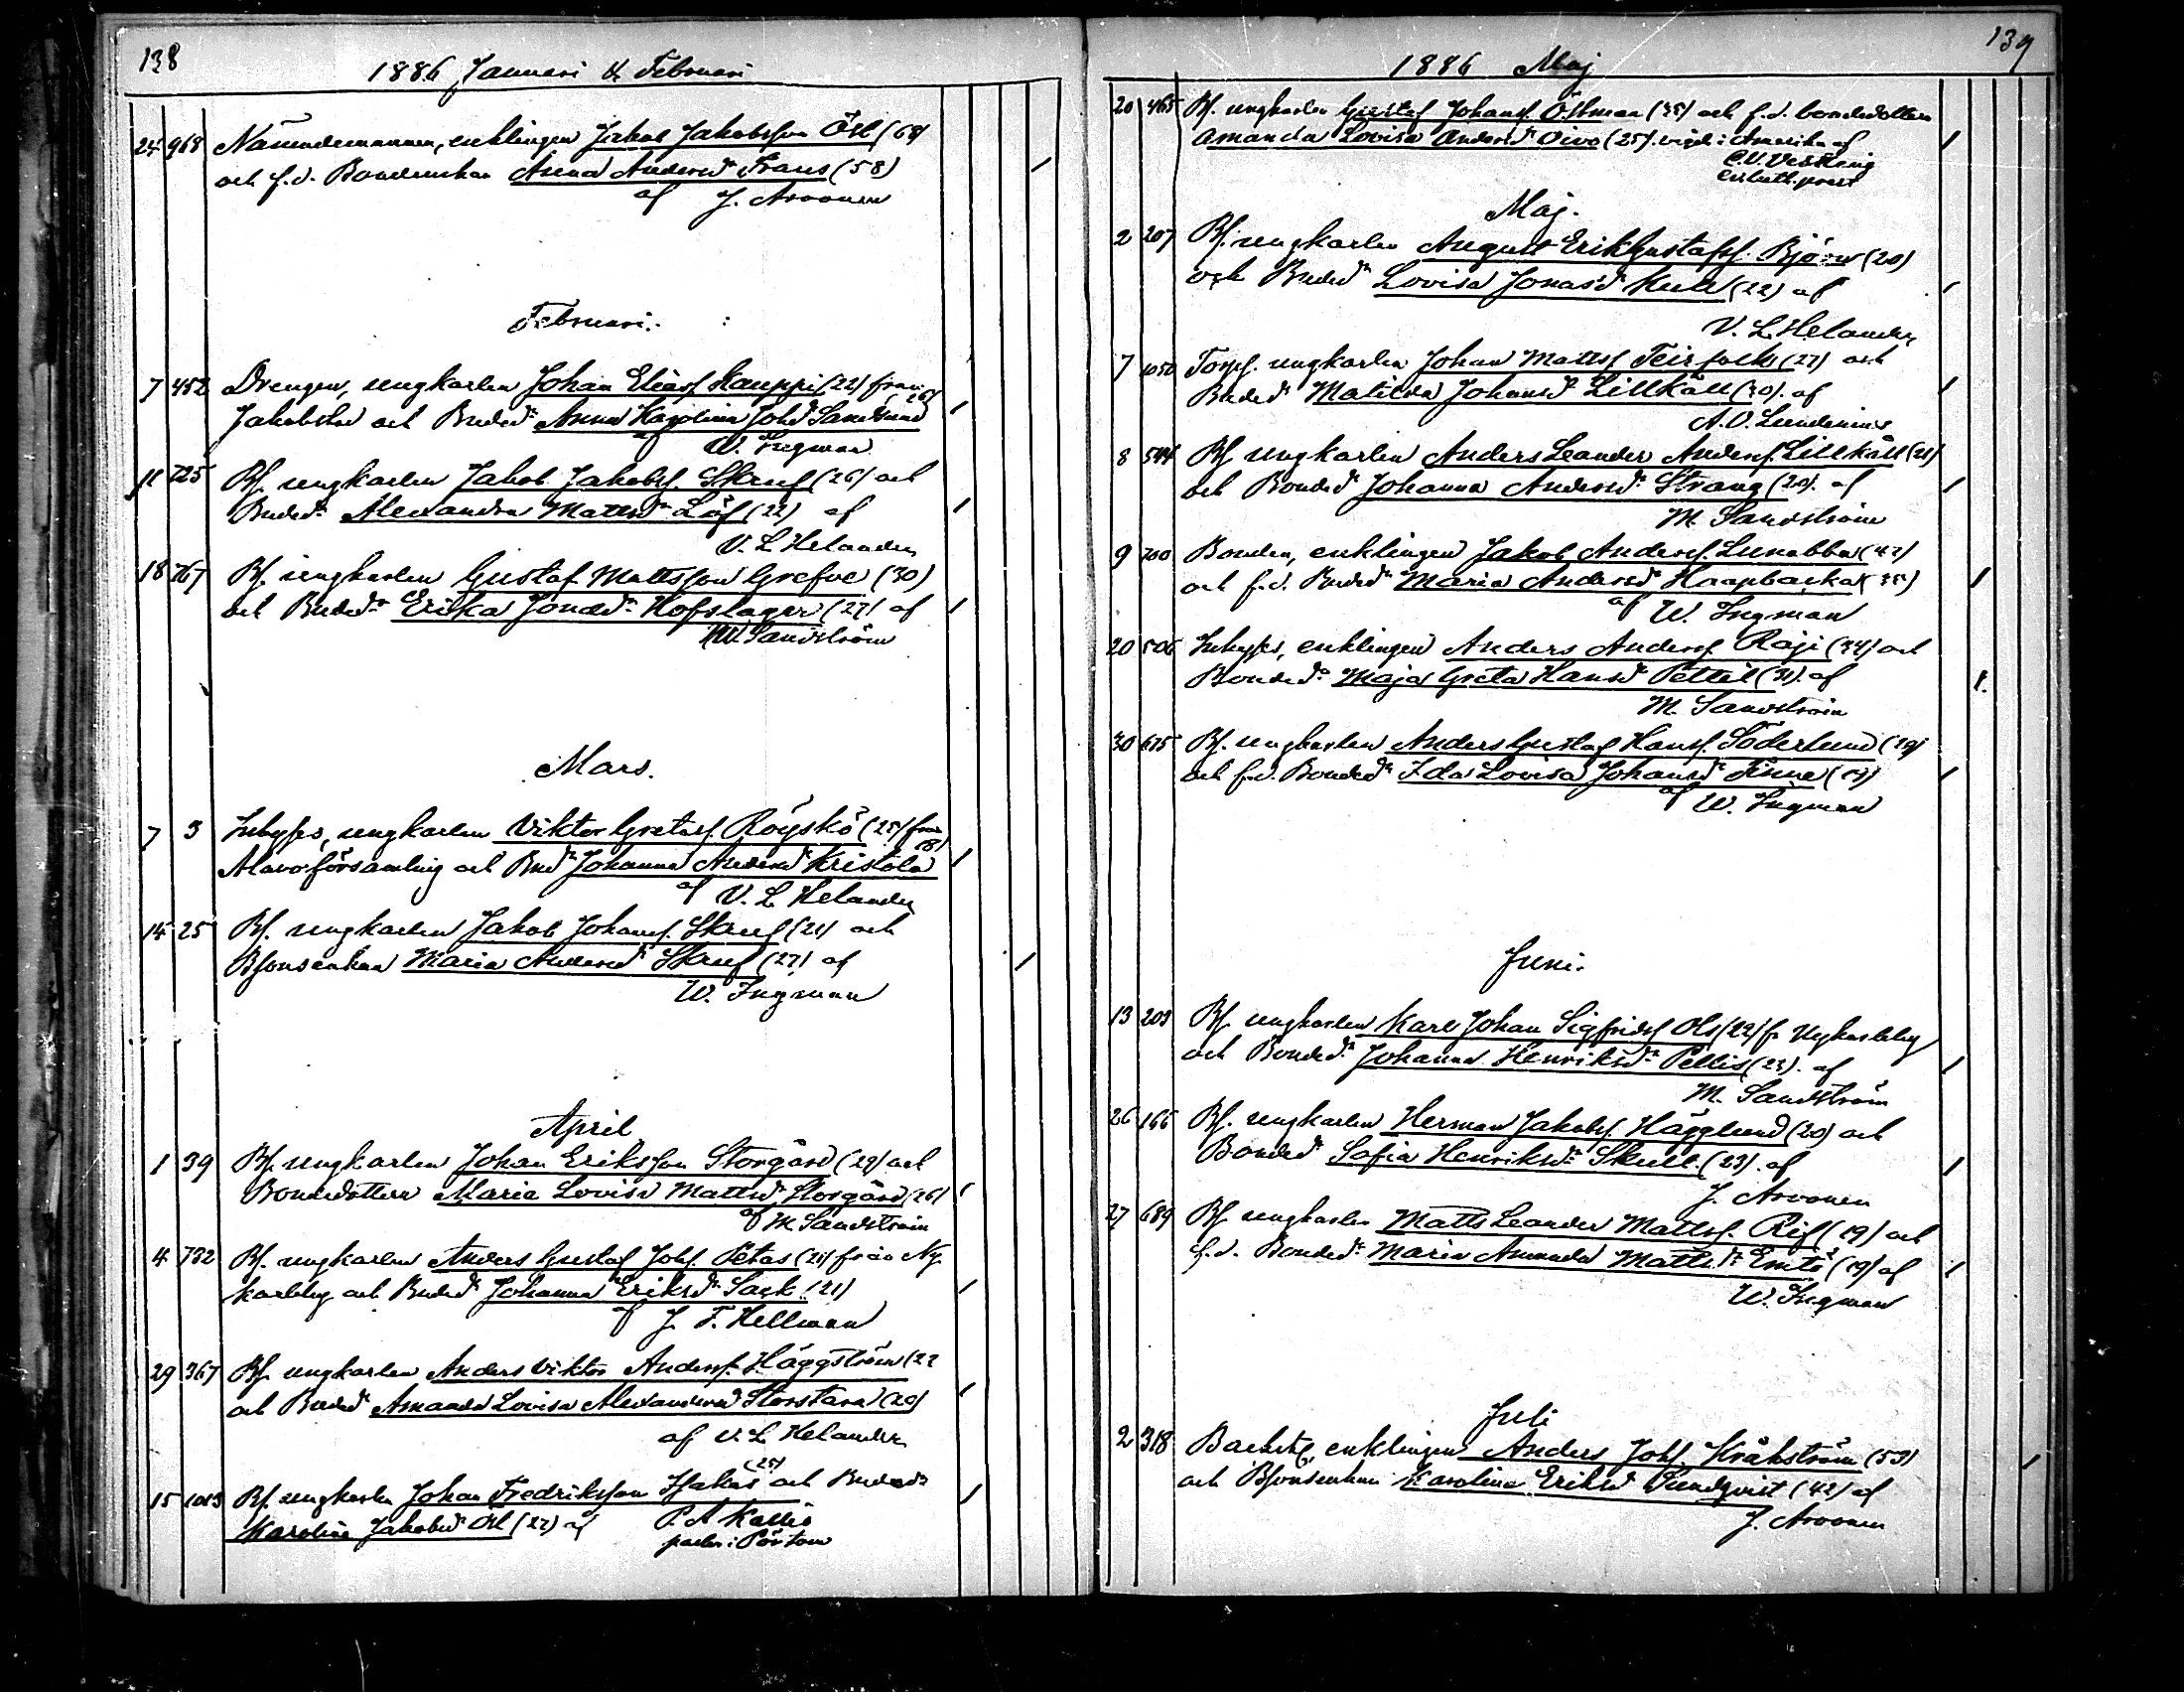 138
1886 Januari & Februari
24 968 Nämndemannen, enklingen Jakob Jakobsson Öst (68)
och f.d. Bondenkan Anna Andersdr Frans (58)
af J. Arvonen
Februari.
7 452 Drengen, ungkarlen Johan Eliasf. Kauppi (22) från
Jakobstad och Bndedr Anna Karolina Johdr Sandsund
af W. Ingman
11 725 Bf. ungkarlen Jakob Jakobsf. Skruf (26) och
Bndedr Alexandra Mattsdr Löf (22) af
V. L. Helander
18 767 Bf. ungkarlen Gustaf Mattsson Grefve (30)
och Bndedr Erika Jonasdr Hofslagare (27) af
M. Sandström
Mars.
7 3 Inhyses, ungkarlen Viktor Gustafsf. Röyskö (25) från
Alavo församling och Bnd Johanna Andersdr Kristola
af V. L. Helander
14 25 Bf. ungkarlen Jakob Johansf. Skruf (21) och
Bfonsenkan Maria Andersdr Skruf (27) af
W. Ingman
April
1 39 Bf. ungkarlen Johan Eriksson Storgård (29) och
Bondedottern Maria Lovisa Mattsdr Storgård (26)
af M. Sandström
4 732 Bf. ungkarlen Anders Gustaf Johf. Petas (21) från Ny
karleby och Bndedr Johanna Eriksdr Sack (21)
af J. F. Hellman
29 367 Bf. ungkarlen Anders Viktor Andersf. Häggström (22
och Bndedr Amanda Lovisa Alexandersdr Storstara (20)
af V. L. Helander
(25)
15 1013 Bf. ungkarlen Johan Fredriksson Isakas och Bndedr
Karolina Jakobsdr Öst (22) af P. A Kallio
pastor i Pörtom
139
1886 Maj
20 465 Bf. ungkarlen Gustaf Johansf. Östman (35) och f.d. bondedottern
Amanda Lovisa Andersdr Oivo (25). vigde i Amerika af
ev. luth. prest
Maj.
2 207 Bf. ungkarlen August Erik Gustafsf. Björn (20)
och Bndedr Lovisa Jonasdr Kull (22) af
V. L. Helander
7 1050 Torpf. ungkarlen Johan Mattsf. Teirfolk (27) och
Bndedr Matilda Johansdr Lillkäll (30). af
A. O. Lundenius
8 544 Bf. ungkarlen Anders Leander Andersf. Lillkäll (21)
och Bondedr Johanna Andersdr Strang (20). af
M. Sandström
9 700 Bonden, enklingen Jakob Andersf. Lunabba (42)
och f.d. Bndedr Maria Andersdr Haapbacka (35)
af W. Ingman
20 506 Inhyses, enklingen Anders Andersf. Räji (34) och
Bondedr Maja Greta Hansdr Pettil (31). af
M. Sandström
30 675 Bf. ungkarlen Anders Gustaf Hansf. Söderlund (19)
och f.d. Bondedr Ida Lovisa Johansdr Finne (19)
af W. Ingman
Juni.
13 203 Bf. ungkarlen Karl Johan Sigfridsf. Ols (22) fr. Nykarleby
och Bondedr Johanna Henriksdr Pellis (23). af
M. Sandström
26 166 Bf. ungkarlen Herman Jakobsf. Hägglund (20) och
Bondedr Sofia Henriksdr Skull (23). af
J. Arvonen
27 689 Bf. ungkarlen Matts Leander Mattsf. Rif (19) och
f.d. Bondedr Maria Amanda Mattsdr Emtö (19) af
W. Ingman
Juli
2 318 Backstg, enklingen Anders Johf. Kråkström (53)
och Bfonsenkan Karolina Eriksdr Sundqvist (42) af
J. Arvonen